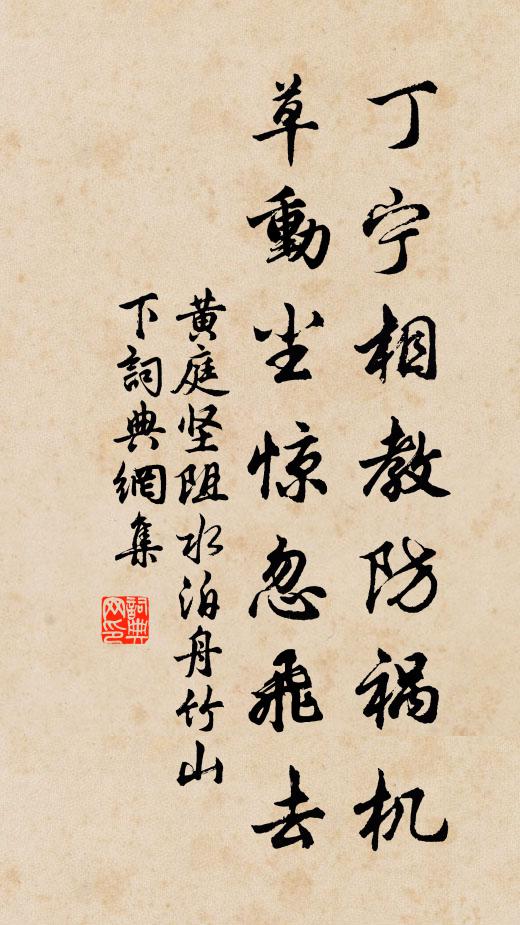 丁宁相教防祸机
草動尘惊忽飛去
黄庭坚阻水泊舟竹山
下詞典網集
詞典网印